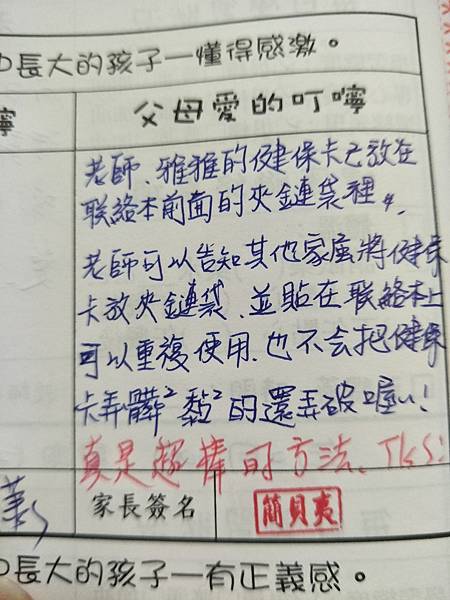 中長大的孩子—懂得感激。
嚀
父母愛的叮嚀
老師、雅雅的健保卡已放在
聯絡本前面的夾鏈袋裡。
老師可以告知其他家属將健保
卡放夾鏈袋、並貼在聯絡本上
可以重複使用、也不会把健保
卡弄髒²黏²的還弄破喔!
真是超棒的方法、TKS!
家長簽名
簡貝
中長大的孩子—有正義感。